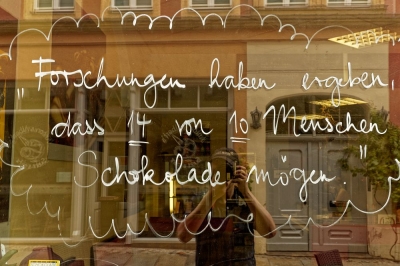 „Forschungen haben ergeben,
dass 14 von 10 Menschen
Schokolade mögen."